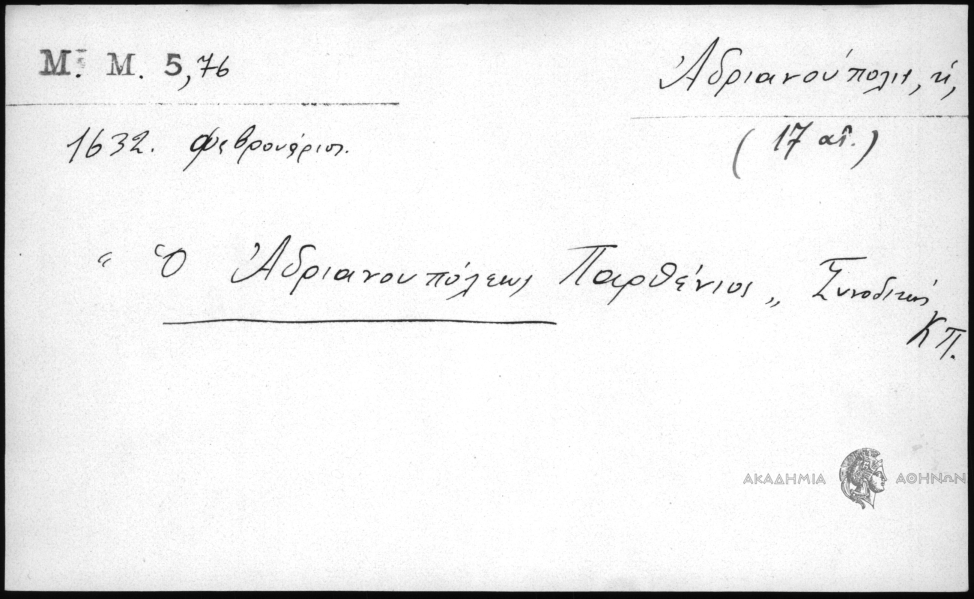 Μ. Μ. 5,76
Ἀδριανούπολις, ἡ,
(17 αἰ.)
1632. Φεβρουάριος.
"Ὁ Ἀδριανουπόλεως Παρθένιος" Συνοδική
ΚΠ.
ΑΚΑΔΗΜΙΑ ΑΘΗΝΩΝ